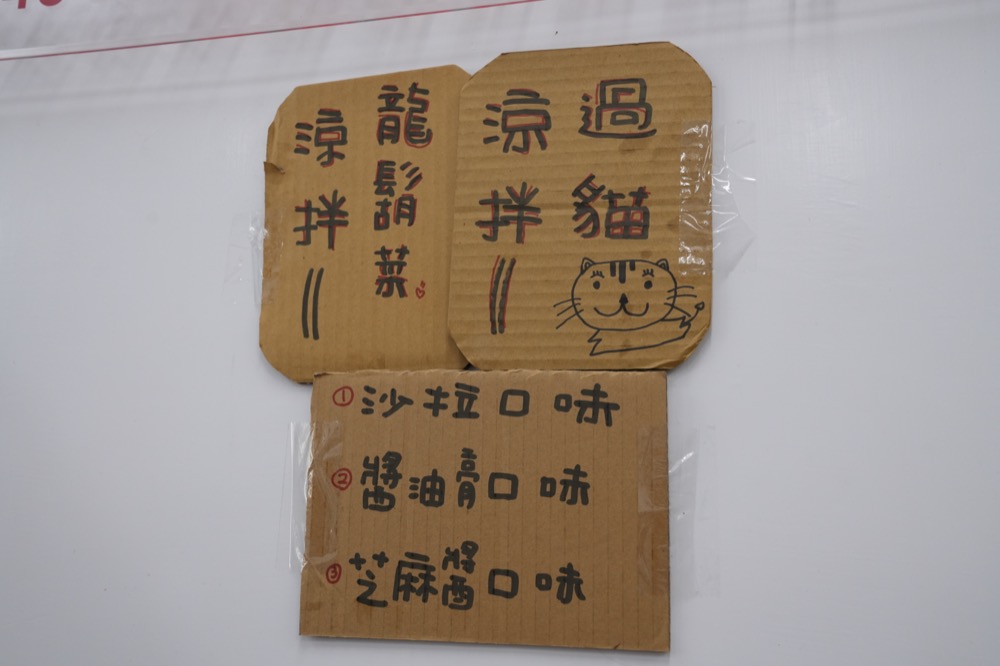 過貓
涼拌
龍鬍菜
涼拌
①沙拉口味
②醬油膏口味
③芝麻醬口味